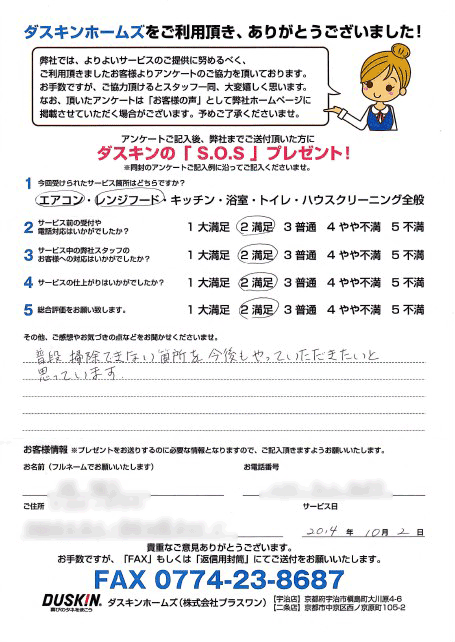 ダスキンホームズをご利用頂き、ありがとうございました!
弊社では、よりよいサービスのご提供に努めるべく、
ご利用頂きましたお客様よりアンケートのご協力を頂いております。
お手数ですが、ご協力頂けるとスタッフ一同、大変嬉しく思います。
なお、頂いたアンケートは「お客様の声」として弊社ホームページに
掲載させていただく場合がございます。予めご了承くださいませ。
アンケートご記入後、弊社までご送付頂いた方に
ダスキンの「S.O.S」プレゼント!
※同封のアンケートご記入例に沿ってご記入くださいませ。
1 今回受けられたサービス箇所はどちらですか?
エアコン・レンジフード・キッチン・浴室・トイレ・ハウスクリーニング全般
2 サービス前の受付や
電話対応はいかがでしたか? 1 大満足 2 満足 3 普通 4 やや不満 5 不満
3 サービス中の弊社スタッフの
お客様への対応はいかがでしたか? 1 大満足 2 満足 3 普通 4 やや不満 5 不満
4 サービスの仕上がりはいかがでしたか? 1 大満足 2 満足 3 普通 4 やや不満 5 不満
5 総合評価をお願い致します。 1 大満足 2 満足 3 普通 4 やや不満 5 不満
その他、ご感想やお気づきの点などをお聞かせくださいませ。
普段 掃除できない箇所を 今後もやっていただきたいと
思っています.
お客様情報 ※プレゼントをお送りするのに必要な情報となりますので、ご記入頂きますようお願いいたします。
お名前(フルネームでお願いいたします) お電話番号
ご住所 サービス日
2014 年 10月 2 日
貴重なご意見ありがとうございます。
お手数ですが、「FAX」もしくは「返信用封筒」にてご送付をお願いいたします。
FAX 0774-23-8687
DUSKIN. ダスキンホームズ(株式会社プラスワン) 【宇治店】京都府宇治市槇島町大川原4-6
喜びのタネをまこう 【二条店】京都市中京区西ノ京原町105-2